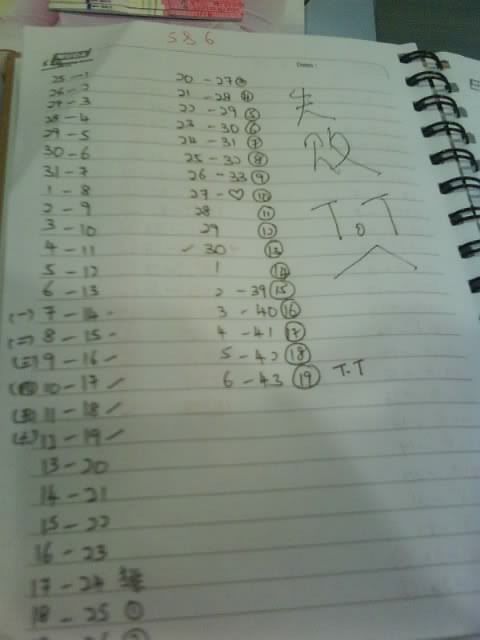 586
Date:
25-1
26-2
27-3
28-4
29-5
30-6
31-7
1-8
2-9
3-10
4-11
5-12
6-13
(一) 7-14
(二) 8-15
(三) 9-16
(四) 10-17 ✓
(五) 11-18 ✓
(六) 12-19 ✓
13-20
14-21
15-22
16-23
17-24
18-25 ①
20-27 ③
21-28 ④
22-29 ⑤
23-30 ⑥
24-31 ⑦
25-32 ⑧
26-33 ⑨
27-♡ ⑩
28 ⑪
29 ⑫
30 ⑬
1 ⑭
2-39 ⑮
3-40 ⑯
4-41 ⑰
5-42 ⑱
6-43 ⑲ T.T
失
败
T o T